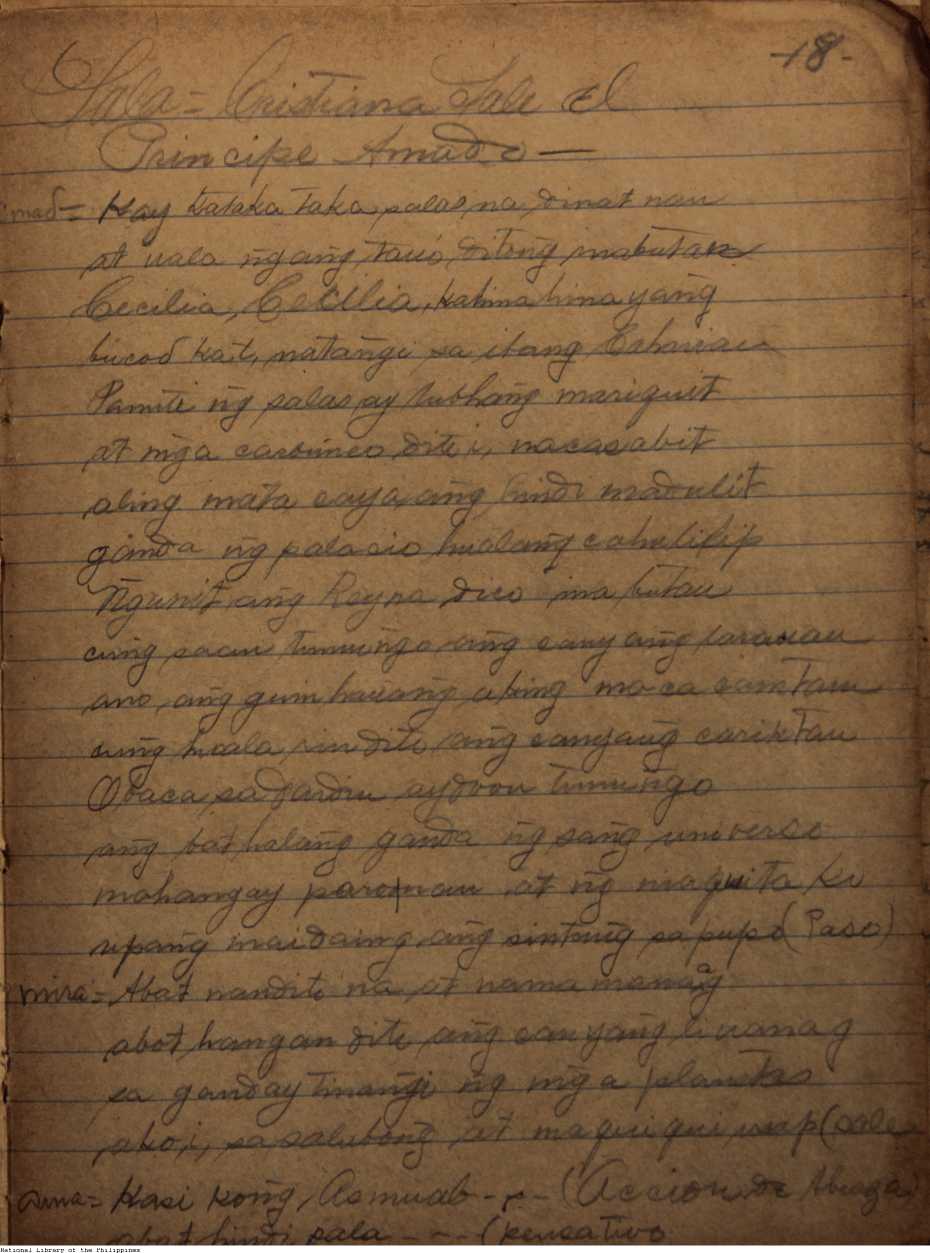 -18-
Sala = Cristiana Sale El
Principe Amado —
mad = Kay kataka taka palas na dinat nan
at uala ng̃ ang̃ tauo ditong̃ inabutan
Cecilia, Cecilia, kahinahinayang̃
bucod kat, natang̃i sa ibang
ng̃ palas ay lubhang̃ mariquit
at mg̃a dito i, nacasabit
aling mata caya ang̃ hindi
ganda ng̃ palacio hualang̃ cahulilip
Ng̃unit ang̃ Reyna dico inabutan
cung saan tumung̃o ang̃ canyang̃ larauan
ano ang̃ guinhauang̃ aking macacamtan
cung huala rin dito ang̃ canyang̃ cariktan
Obaca sa jardin aydoon tumung̃o
ang̃ bathalang̃ ganda ng̃ sang̃ universo
mahang̃ay paronan at ng̃ maquita ko
upang̃ maidaing ang̃ sintang̃ sa puso (Paso)
mira = Abat nandito na at namamanaag
abot hangan dito ang̃ canyang̃ liuanag
sa ganday tinang̃i ng̃ mg̃a planetas
ako i, sasalubong̃ at maquiquiusap (sale
ama = Kasi kong̃ Asmuab - - - (Accion de Abraza)
abat hindi pala - - - (pensativo
National Library of the Philippines